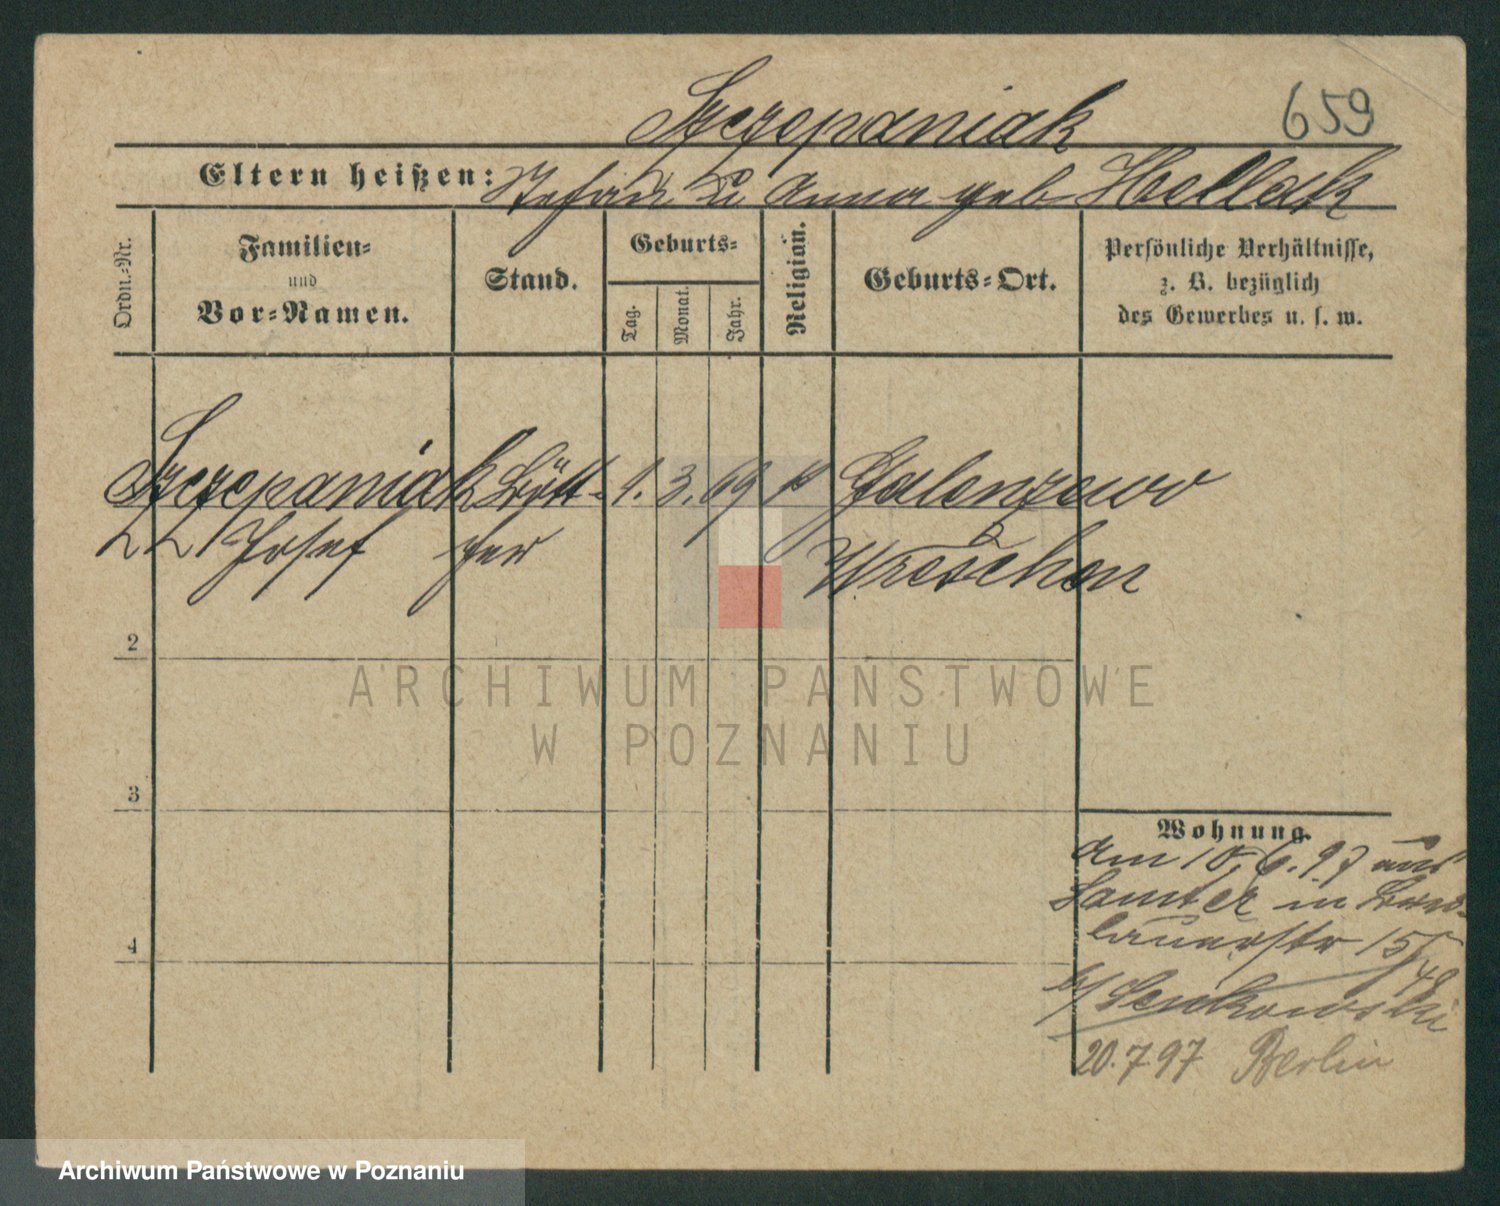 Szczepaniak 659
Eltern heißen: Stefan u Anna geb Hellak
Ordn.-Nr.
Familien-
und
Vor-Namen.
Stand.
Geburts-
Tag.
Monat.
Jahr.
Religion.
Geburts-Ort.
Persönliche Verhältnisse,
z. B. bezüglich
des Gewerbes u. s. w.
Szczepaniak Bött- 1. 3. 69 k Galenzewo
Josef cher Wreschen
2
3
4
Wohnung.
am 10.6.97 aus
Samter in Bres-
lauerstr 15
b/
20.7.97 Berlin
ARCHIWUM PAŃSTWOWE
W POZNANIU
Archiwum Państwowe w Poznaniu